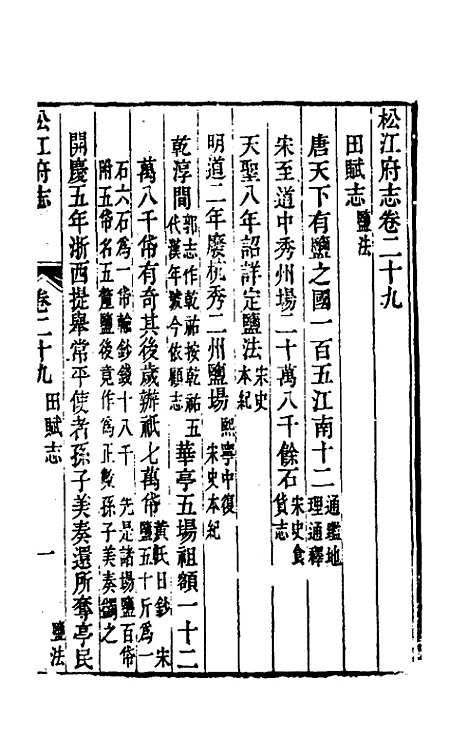 松江府志卷二十九
田賦志鹽法
唐天下有鹽之國一百五江南十二通鑑地理通釋
宋至道中秀州場二十萬八千餘石宋史食貨志
天聖八年詔詳定鹽法宋史本紀
明道二年廢杭秀二州鹽場熙寧中復宋史本紀
乾淳間郭志作乾祐按乾祐五代漢年號今依顧志華亭五場祖額一十二
萬八千帒有奇其後歲辦祇七萬帒黃氏日鈔宋鹽五十斤爲一
石六石爲一帒輸鈔錢十八千先是諸場鹽百帒附五帒名五釐鹽後竟作爲正整孫子美奏蠲之
開慶五年浙西提舉常平使者孫子美奏還所奪亭民
松江府志
卷二十九
田賦志
一
鹽法